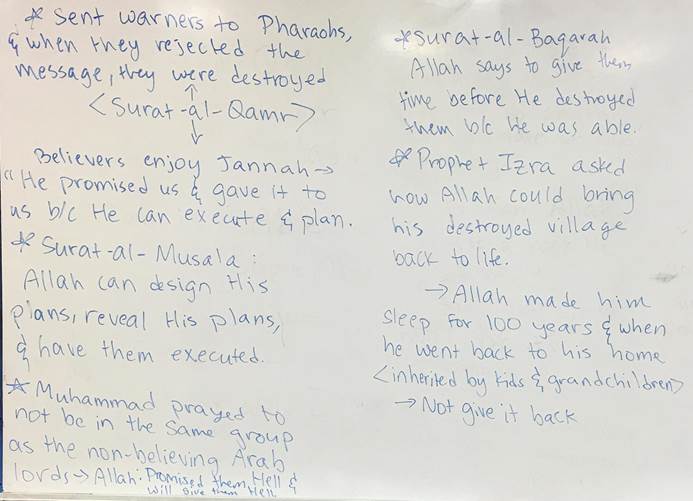 * Sent warners to Pharaohs,
& when they rejected the
message, they were destroyed
<Surat-al-Qamr>
Believers enjoy Jannah→
"He promised us & gave it to
us b/c He can execute & plan.
* Surat-al-Musala:
Allah can design His
plans, reveal His plans,
& have them executed.
* Muhammad prayed to
not be in the same group
as the non-believing Arab
lords→ Allah: Promised them Hell &
will give them Hell.
*Surat-al-Baqarah
Allah says to give them
time before He destroyed
them b/c He was able.
* Prophet Izra asked
how Allah could bring
his destroyed village
back to life.
→ Allah made him
sleep for 100 years & when
he went back to his home
<inherited by kids & grandchildren>
→ Not give it back